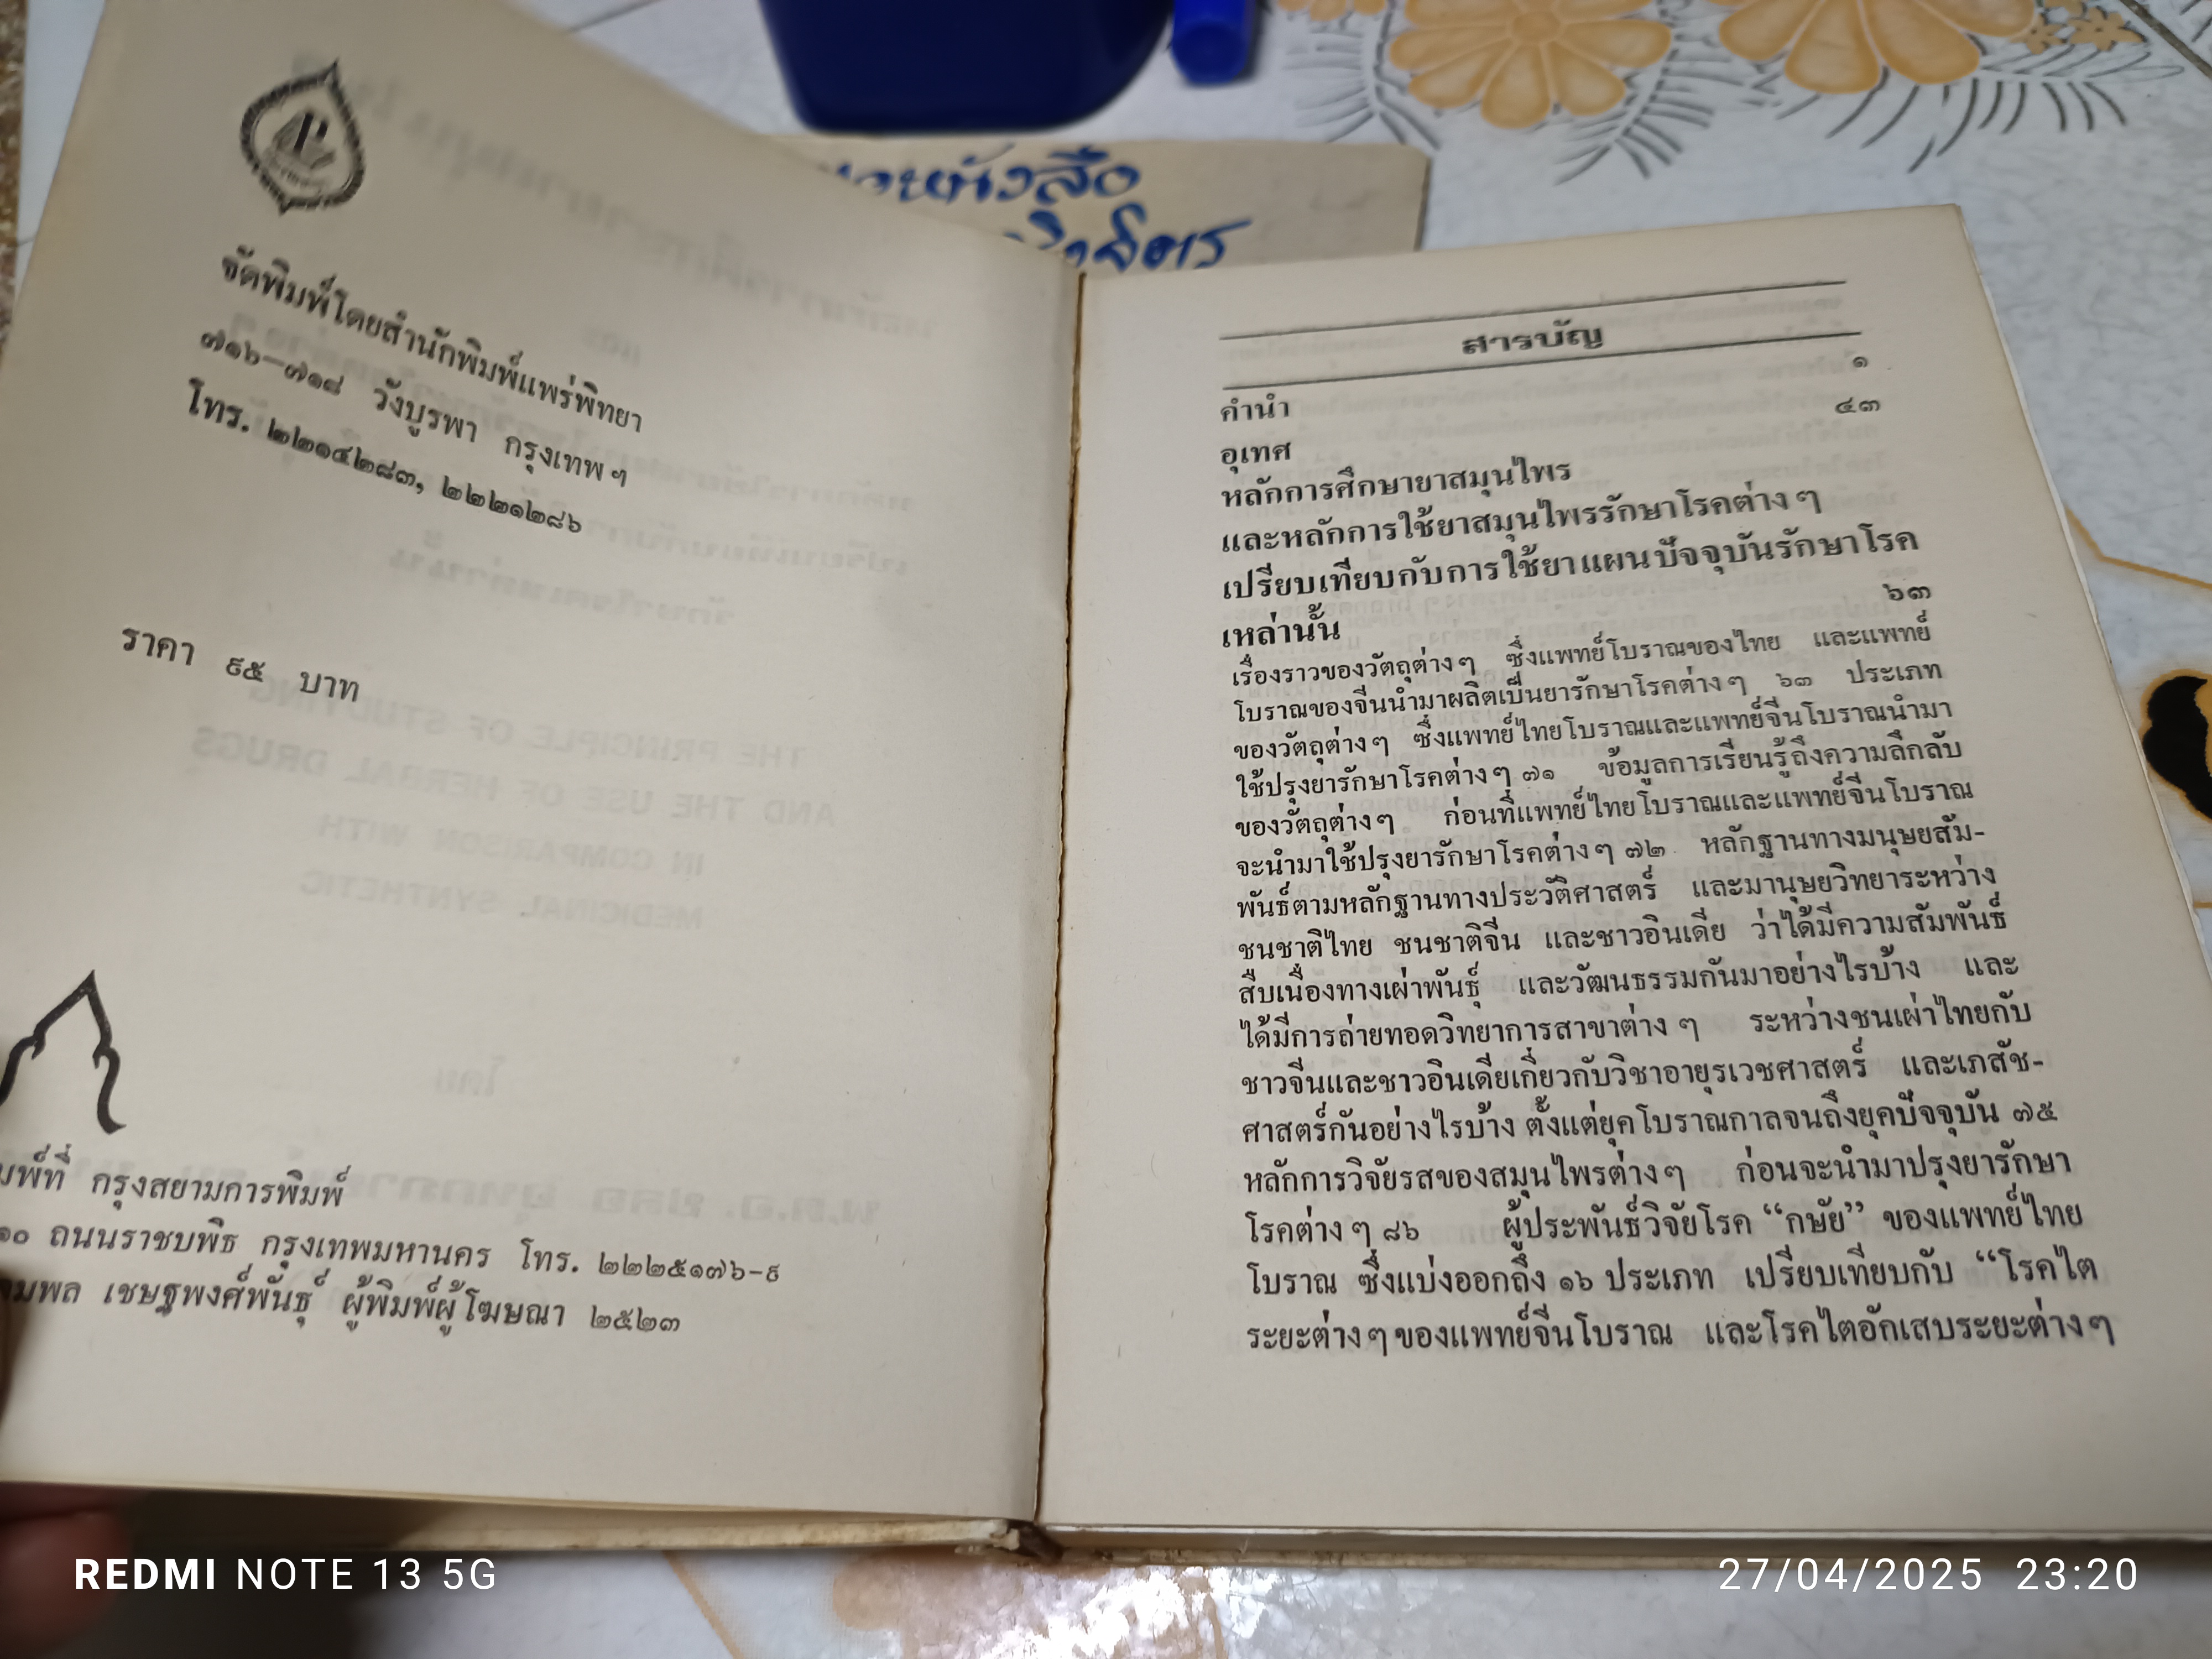 จัดพิมพ์โดยสำนักพิมพ์แพร่พิทยา
๗๑๖–๗๑๘ วังบูรพา กรุงเทพฯ
โทร. ๒๒๑๔๒๘๓, ๒๒๒๑๒๘๖
ราคา ๙๕ บาท
กรุงสยามการพิมพ์
ถนนราชบพิธ กรุงเทพมหานคร โทร. ๒๒๒๕๑๗๖-๙
เชษฐพงศ์พันธุ์ ผู้พิมพ์ผู้โฆษณา ๒๕๒๓
หนังสือ
สารบัญ
คำนำ ๑
อุเทศ ๔๓
หลักการศึกษายาสมุนไพร
และหลักการใช้ยาสมุนไพรรักษาโรคต่าง ๆ
เปรียบเทียบกับการใช้ยาแผนปัจจุบันรักษาโรค
เหล่านั้น ๖๓
เรื่องราวของวัตถุต่าง ๆ ซึ่งแพทย์โบราณของไทย และแพทย์
โบราณของจีนนำมาผลิตเป็นยารักษาโรคต่าง ๆ ๖๓ ประเภท
ของวัตถุต่าง ๆ ซึ่งแพทย์ไทยโบราณและแพทย์จีนโบราณนำมา
ใช้ปรุงยารักษาโรคต่าง ๆ ๗๑ ข้อมูลการเรียนรู้ถึงความลึกลับ
ของวัตถุต่าง ๆ ก่อนที่แพทย์ไทยโบราณและแพทย์จีนโบราณ
จะนำมาใช้ปรุงยารักษาโรคต่าง ๆ ๗๒ หลักฐานทางมนุษยสัม-
พันธ์ตามหลักฐานทางประวัติศาสตร์ และมานุษยวิทยาระหว่าง
ชนชาติไทย ชนชาติจีน และชาวอินเดีย ว่าได้มีความสัมพันธ์
สืบเนื่องทางเผ่าพันธุ์ และวัฒนธรรมกันมาอย่างไรบ้าง และ
ได้มีการถ่ายทอดวิทยาการสาขาต่าง ๆ ระหว่างชนเผ่าไทยกับ
ชาวจีนและชาวอินเดียเกี่ยวกับวิชาอายุรเวชศาสตร์ และเภสัช-
ศาสตร์กันอย่างไรบ้าง ตั้งแต่ยุคโบราณกาลจนถึงยุคปัจจุบัน ๗๕
หลักการวิจัยรสของสมุนไพรต่าง ๆ ก่อนจะนำมาปรุงยารักษา
โรคต่าง ๆ ๘๖ ผู้ประพันธ์วิจัยโรค “กษัย” ของแพทย์ไทย
โบราณ ซึ่งแบ่งออกถึง ๑๖ ประเภท เปรียบเทียบกับ “โรคไต
ระยะต่าง ๆ ของแพทย์จีนโบราณ และโรคไตอักเสบระยะต่าง ๆ
REDMI NOTE 13 5G
27/04/2025 23:20